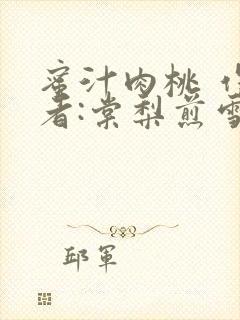 蜜汁肉桃 作
者:棠梨煎雪
邱军